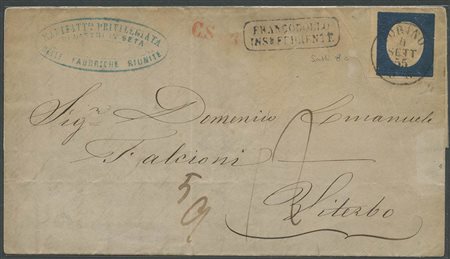 PRIVILEGIATA
FABBRICHE RIUNITE
C.S.
FRANCOBOLLO
INSUFFICIENTE
TORINO
SETT
55
Sig.r Domenico Emanuele
Falcioni
Viterbo
5
9